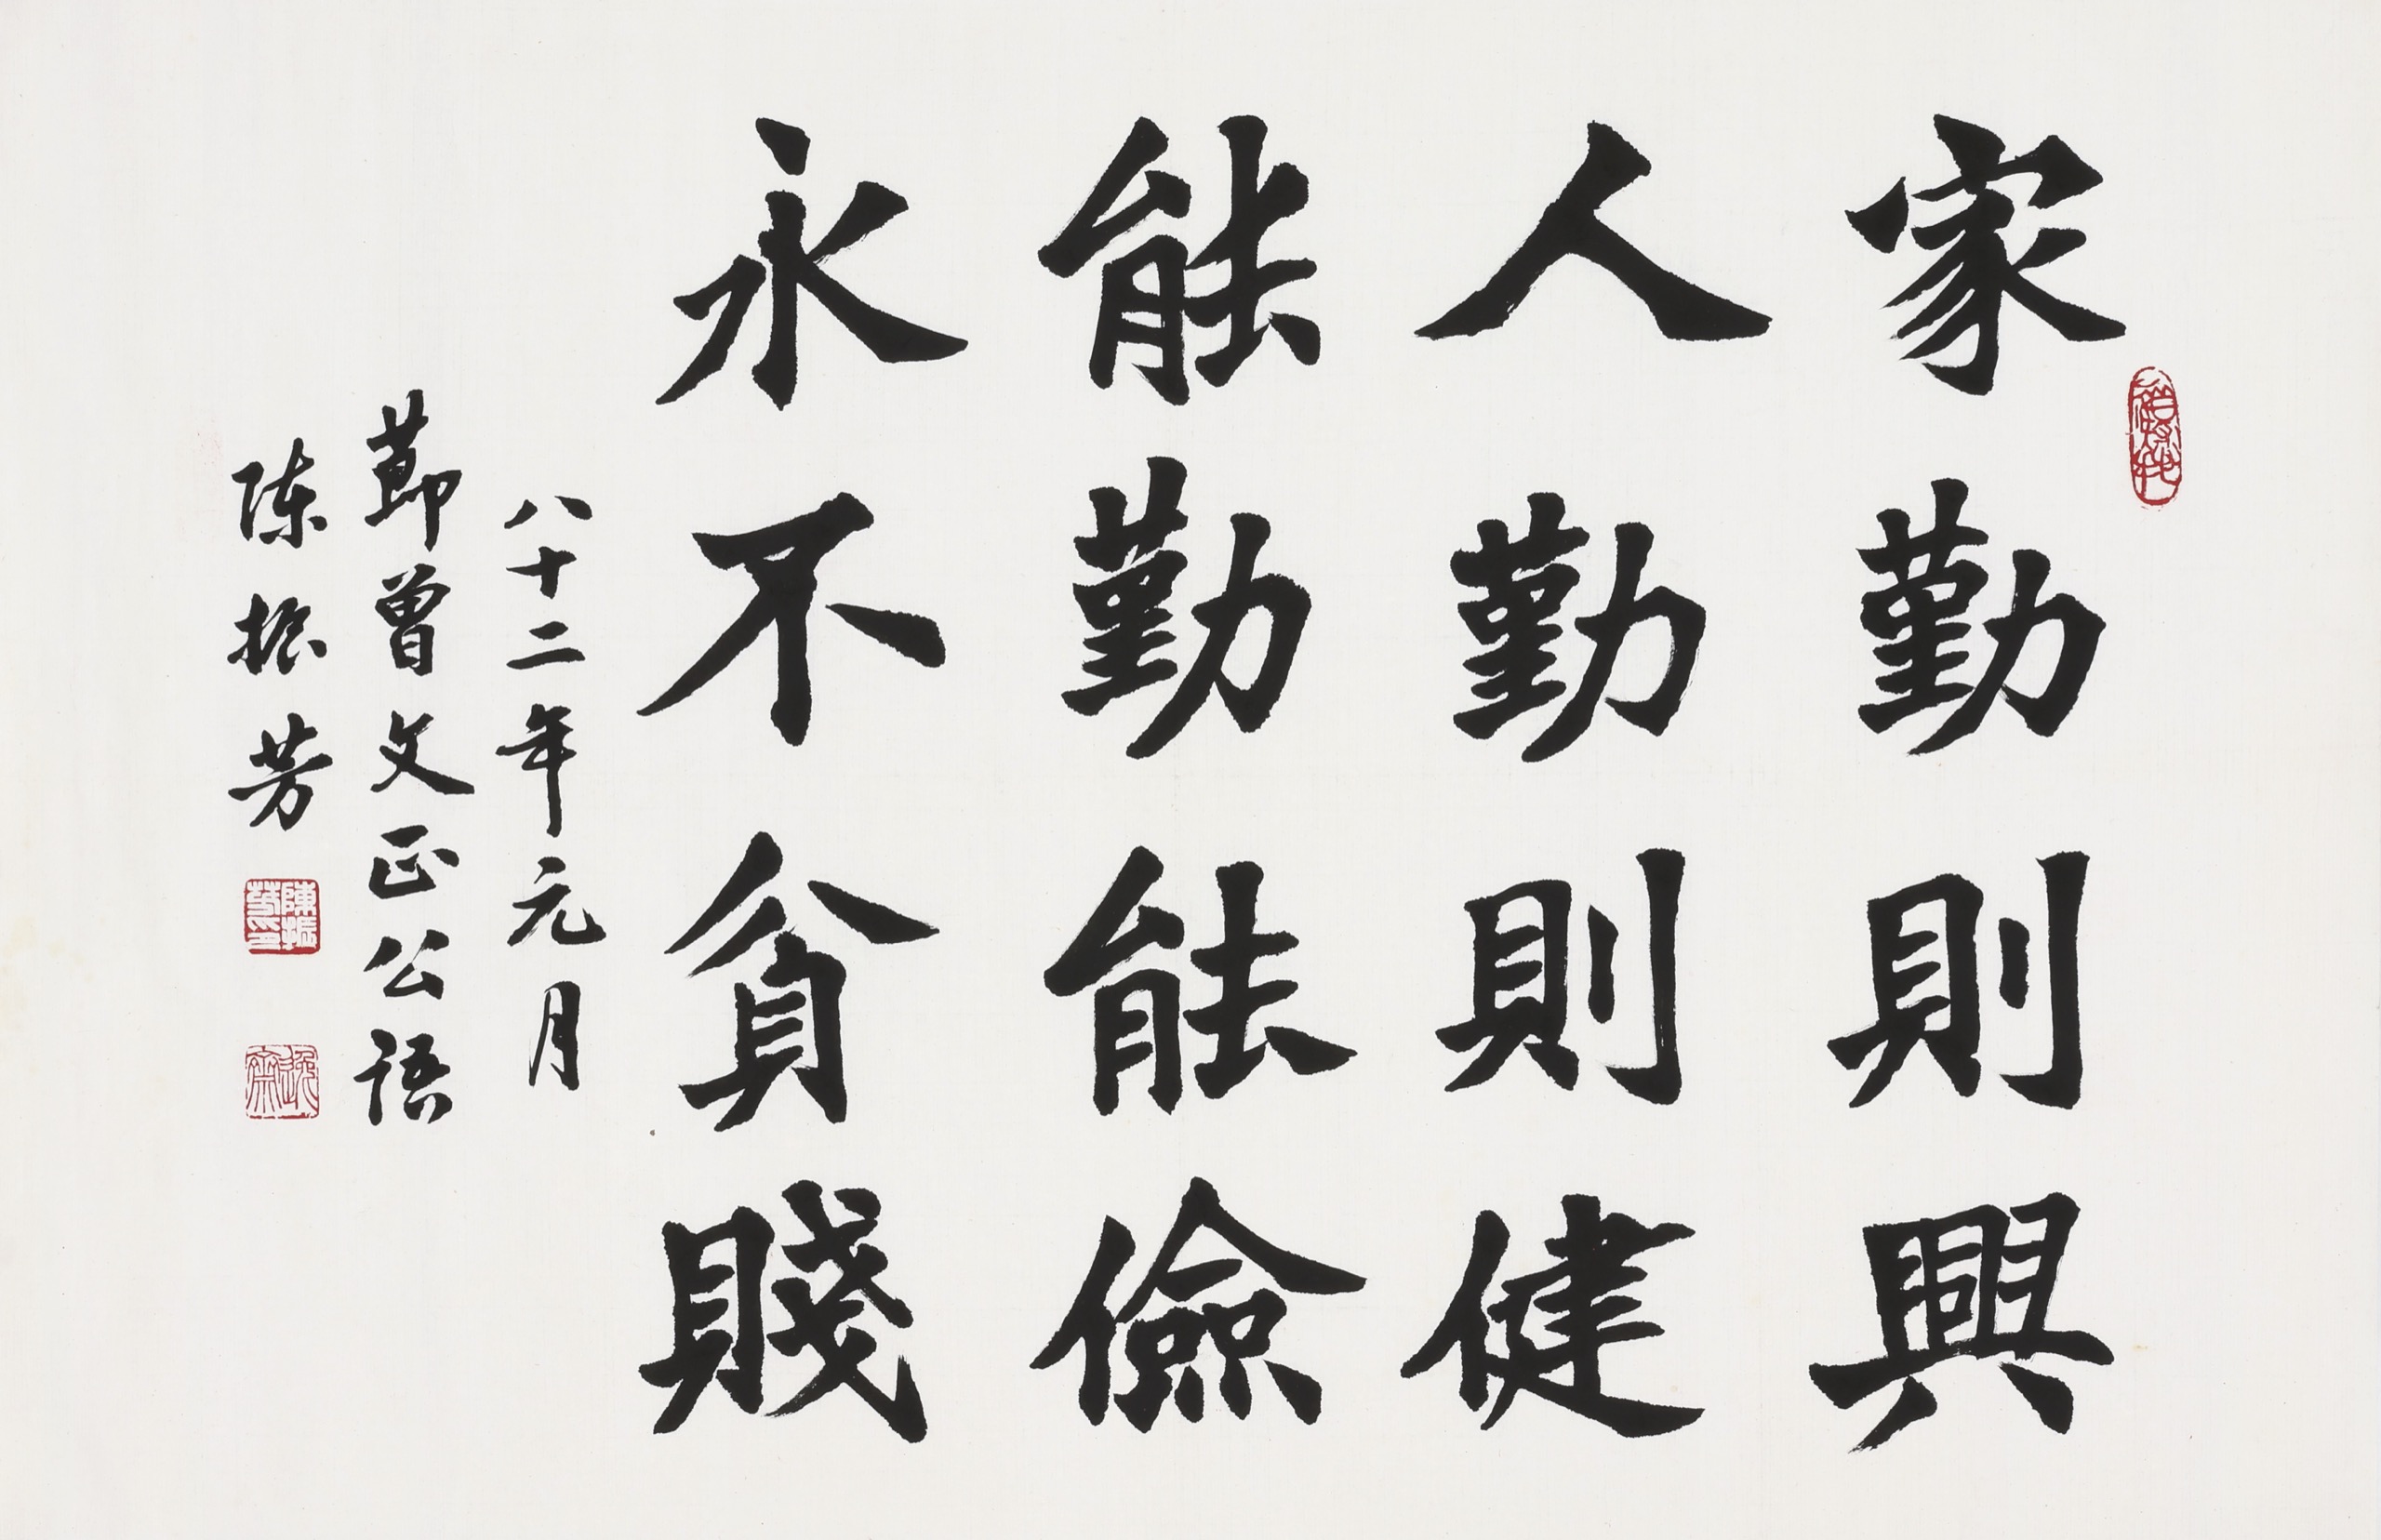 家勤則興
人勤則健
能勤能儉
永不貧賤
八十二年元月
節曾文正公語
陳振芳
陳振芳印
逸齋